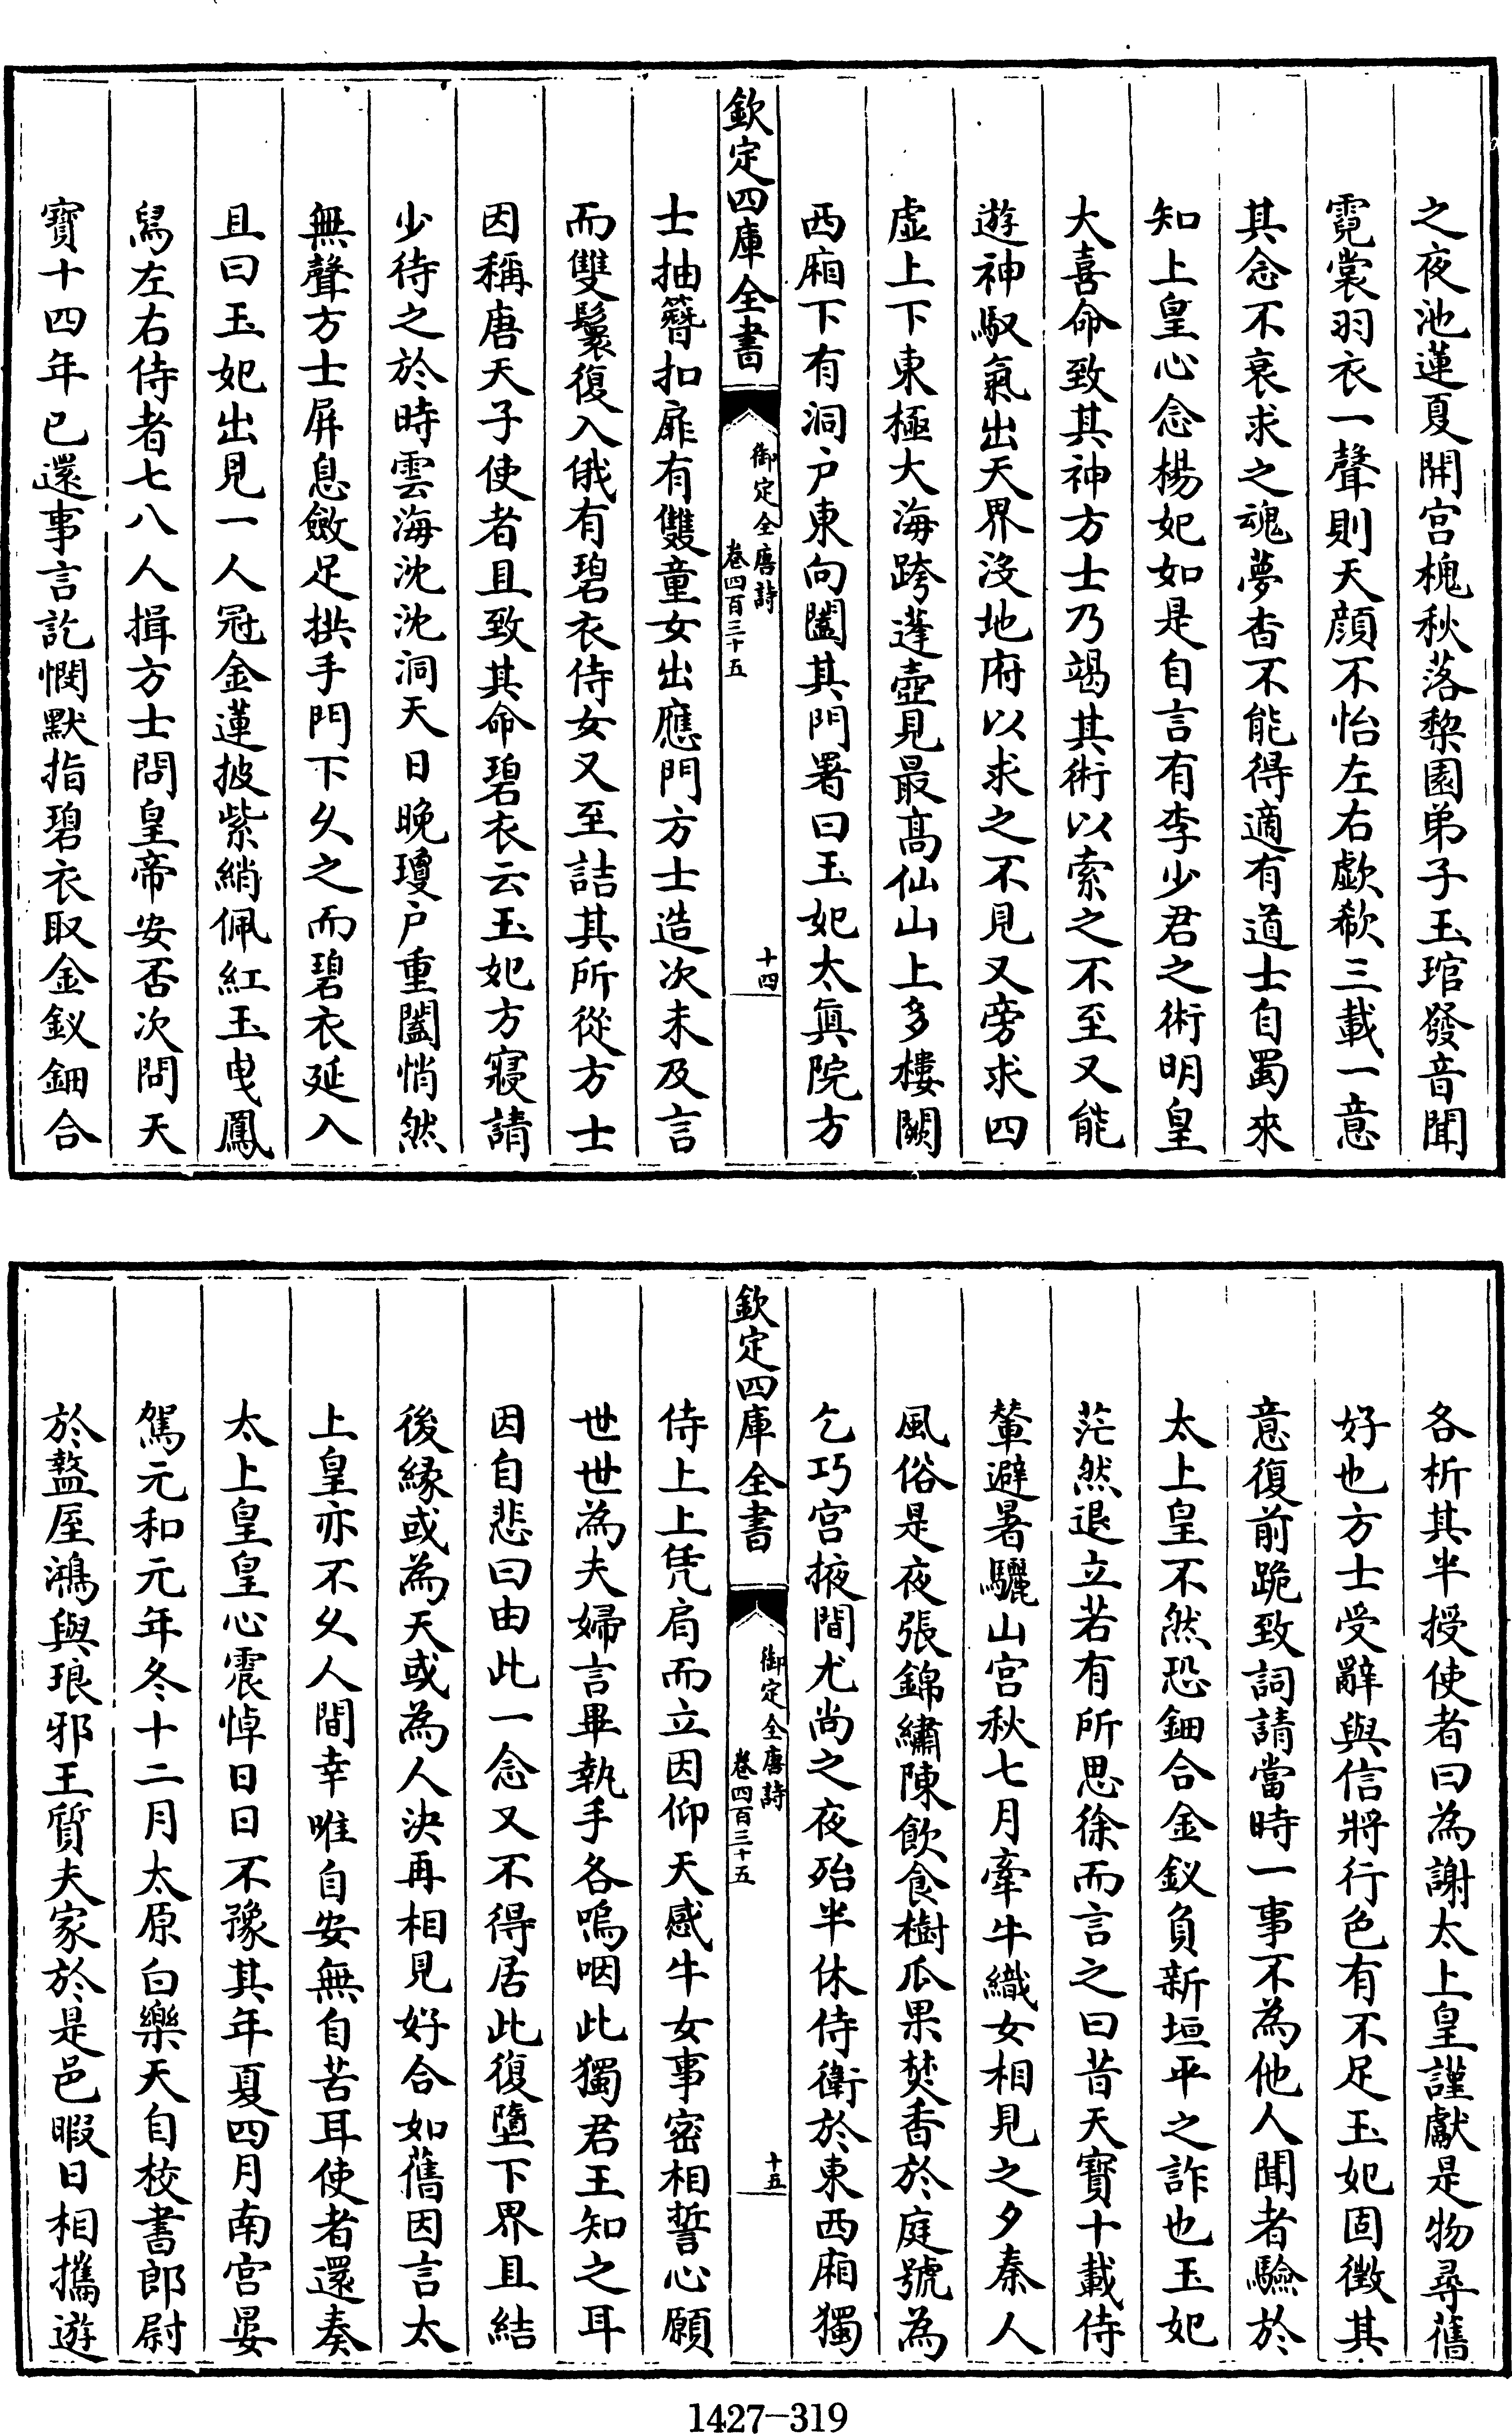 之夜池蓮夏開宫槐秋落棃園弟子玉琯發音聞
霓裳羽衣一聲則天顔不怡左右歔欷三載一意
其念不衰求之魂夢杳不能得適有道士自蜀來
知上皇心念楊妃如是自言有李少君之術明皇
大喜命致其神方士乃竭其術以索之不至又能
遊神馭氣出天界沒地府以求之不見又旁求四
虚上下東極大海跨蓬壺見最高仙山上多樓闕
西廂下有洞户東向闔其門署曰玉妃太真院方
欽定四庫全書
御定全唐詩
卷四百三十五
十四
士抽簪扣扉有雙童女出應門方士造次未及言
而雙鬟復入俄有碧衣侍女又至詰其所從方士
因稱唐天子使者且致其命碧衣云玉妃方寢請
少待之於時雲海沈沈洞天日晚瓊户重闔悄然
無聲方士屏息斂足拱手門下乆之而碧衣延入
且曰玉妃出見一人冠金蓮披紫綃佩紅玉曳鳳
舄左右侍者七八人揖方士問皇帝安否次問天
寶十四年已還事言訖憫默指碧衣取金釵鈿合
各析其半授使者曰為謝太上皇謹獻是物尋舊
好也方士受辭與信將行色有不足玉妃固徵其
意復前跪致詞請當時一事不為他人聞者驗於
太上皇不然恐鈿合金釵負新垣平之詐也玉妃
茫然退立若有所思徐而言之曰昔天寶十載侍
輦避暑驪山宫秋七月牽牛織女相見之夕秦人
風俗是夜張錦繡陳飲食樹瓜果焚香於庭號為
乞巧宫掖間尤尚之夜殆半休侍衛於東西廂獨
欽定四庫全書
御定全唐詩
卷四百三十五
十五
侍上上凭肩而立因仰天感牛女事密相誓心願
世世為夫婦言畢執手各嗚咽此獨君王知之耳
因自悲曰由此一念又不得居此復墮下界且結
後緣或為天或為人決再相見好合如舊因言太
上皇亦不乆人間幸唯自安無自苦耳使者還奏
太上皇皇心震悼日日不豫其年夏四月南宫晏
駕元和元年冬十二月太原白樂天自校書郎尉
於盩厔鴻與琅邪王質夫家於是邑暇日相攜遊
1427-319